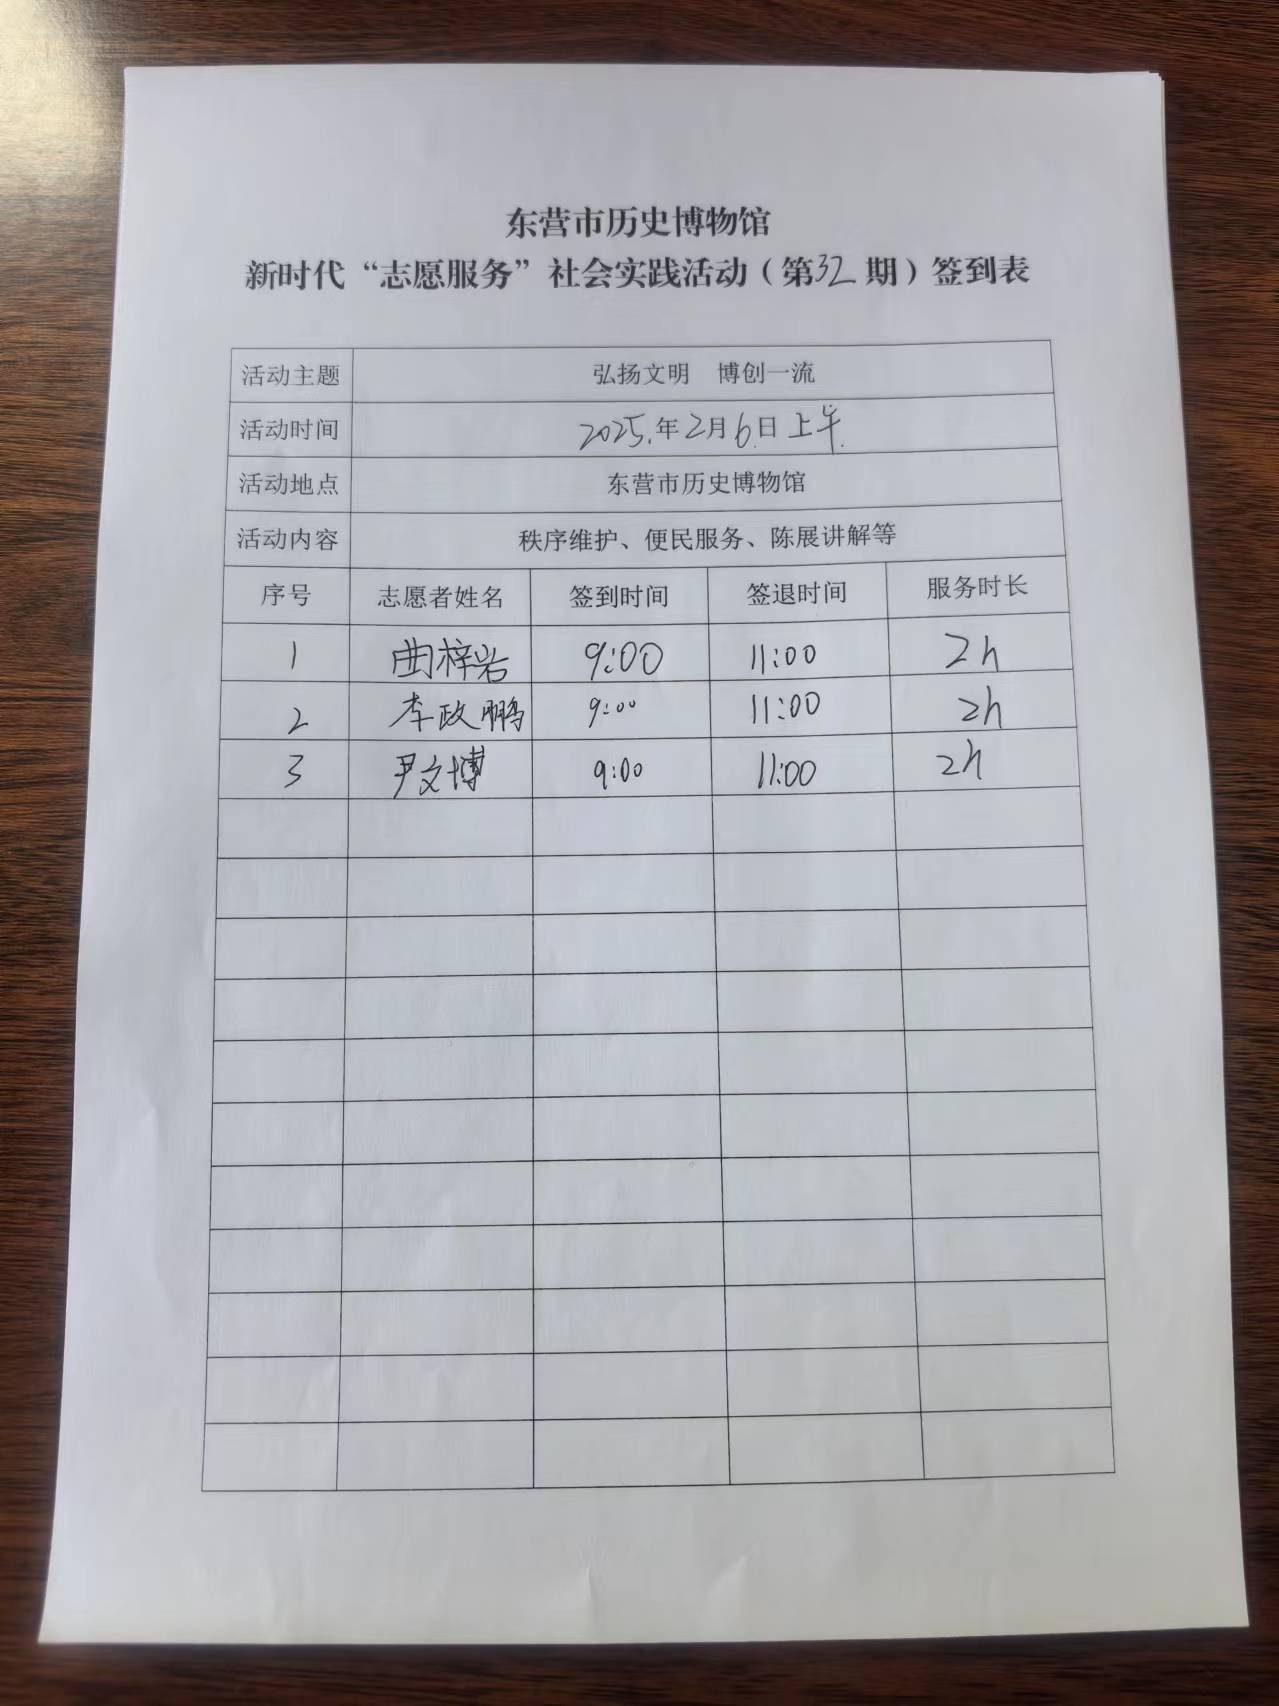 东营市历史博物馆
新时代“志愿服务”社会实践活动（第32期）签到表
活动主题 弘扬文明 博创一流
活动时间 2025.年2月6.日上午.
活动地点 东营市历史博物馆
活动内容 秩序维护、便民服务、陈展讲解等
序号 志愿者姓名 签到时间 签退时间 服务时长
1 曲梓岩 9:00 11:00 2h
2 李政鹏 9:00 11:00 2h
3 尹文博 9:00 11:00 2h